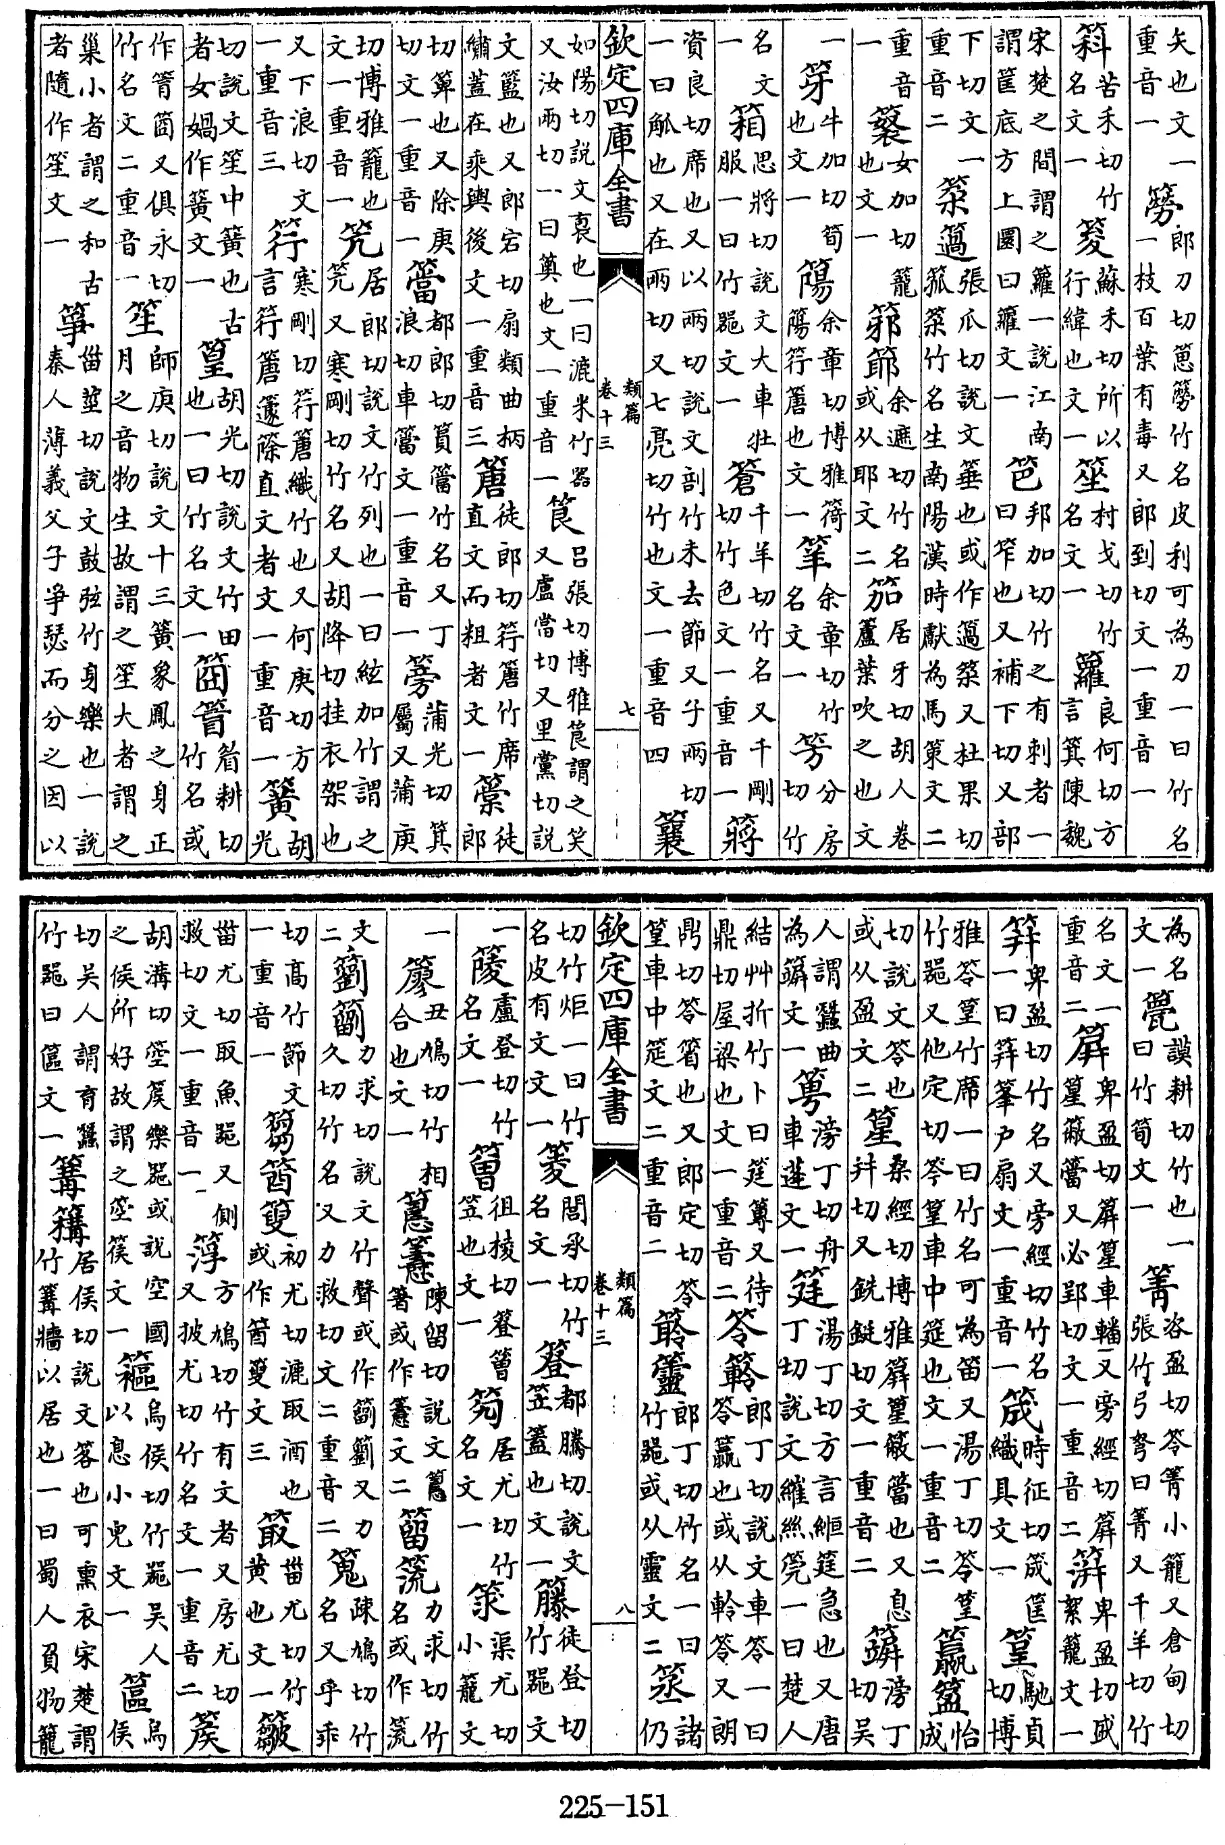 矢也文一重音一簩郎刀切簩竹名皮利可為刀一曰竹名一枝百葉有毒又郎到切文一重音一
苦禾切竹名文一蘇禾切所以行緯也文一村戈切竹名文一籮良何切方言箕陳魏
宋楚之間謂之籮一說江南謂筐底方上圜曰籮文一笆邦加切竹之有刺者一曰笮也又補下切又部
下切文一重音二簻張瓜切說文箠也或作簻又杜果切狐竹名生南陽漢時獻為馬策文二
重音一女加切籠也文一䈰䇩余遮切竹名或从耶文二笳居牙切胡人卷蘆葉吹之也文
一䇦牛加切筍也文一余章切博雅符簹也文一余章切竹名文一䇱分房切竹
名文一箱思將切說文大車牡服一曰竹器文一䈮千羊切竹名又千剛切竹色文一重音一蔣
資良切席也又以兩切說文剖竹未去節又子兩切一曰觚也又在兩切又七亮切竹也文一重音四
欽定四庫全書　類篇　卷十三　七
如陽切說文裏也一曰漉米竹器又汝兩切一曰䈪也文一重音一筤呂張切博雅筤謂之笑又盧當切又里黨切說
文籃也又郎宕切扇類曲柄繡蓋在乘輿後文一重音三篖徒郎切䇦篖竹席直文而粗者文一徒郎
切箄也又除庚切文一重音一簹都郎切篔簹竹名又丁浪切車簹文一重音一篣蒲光切箕屬又蒲庚
切博雅籠也文一重音一笐居郎切說文竹列也一曰絃加竹謂之笐又寒剛切竹名又胡降切挂衣架也
又下浪切文一重音三䇦寒剛切䇦篖織竹也又何庚切方言䇦篖籧篨直文者文一重音一簧胡光
切說文笙中簧也古者女媧作簧文一篁胡光切說文竹田也一曰竹名文一䈍眉耕切竹名或
作䈍又俱永切竹名文二重音一笙師庚切說文十三簧象鳳之身正月之音物生故謂之笙大者謂之
巢小者謂之和古者隨作笙文一箏甾莖切說文鼓弦竹身樂也一說秦人薄義父子爭瑟而分之因以
為名文一謨耕切竹也一曰竹筍文一箐咨盈切笭箐小籠又倉甸切張竹弓弩曰箐又千羊切竹
名文一重音二卑盈切簈篁車轓又旁經切簈篁簂簹又必郢切文一重音二卑盈切盛絮籠文一
卑盈切竹名又旁經切竹名一曰篳戶扇文一重音一筬時征切筬筐織具文一篁馳貞切博
雅笭篁竹席一曰竹名可為笛又湯丁切笭篁竹器又他定切笭篁車中筳也文一重音二籝䇹怡成
切說文笭也或从盈文二篂桑經切博雅簈篁簹也又息幷切又銑鋌切文一重音二旁丁切吳
人謂蠶曲為文一䈡滂丁切舟車蓬文一筳湯丁切方言絙筳急也又唐丁切說文維絲筦一曰楚人
結艸折竹卜曰筳篿又待鼎切屋梁也文一重音二笭郎丁切說文車笭一曰笭籝也或从軨笭又朗
鼎切笭䈰也又郎定切笭篁車中筳文二重音二郎丁切竹名一曰竹器或从靈文二諸仍
欽定四庫全書　類篇　卷十三　八
切竹炬一曰竹名皮有文文一䔖閭承切竹名文一簦都騰切說文笠蓋也文一籐徒登切竹器文
一䉁盧登切竹名文一徂棱切簦笠也文一居尤切竹名文一渠尤切小籠文
一丑鳩切竹相合也文一陳留切說文籌著或作籌文二力求切竹名或作䈵
文二籀力求切說文竹聲或作籀又力久切竹名又力救切文二重音二䈭疎鳩切竹名又乎乖
切高竹節文一重音一篘初尤切漉取酒也或作䈜文三菆甾尤切竹黃也文一
甾尤切取魚器又側救切文一重音一䇬方鳩切竹有文者又房尤切又披尤切竹名文一重音二篌
胡溝切箜篌樂器或說空國之侯所好故謂之箜篌文一䉱烏侯切竹器吳人以息小兒文一䈆烏侯
切吳人謂育蠶竹器曰䈆文一篝居侯切說文客也可熏衣宋楚謂竹篝牆以居也一曰蜀人負物籠
225-151